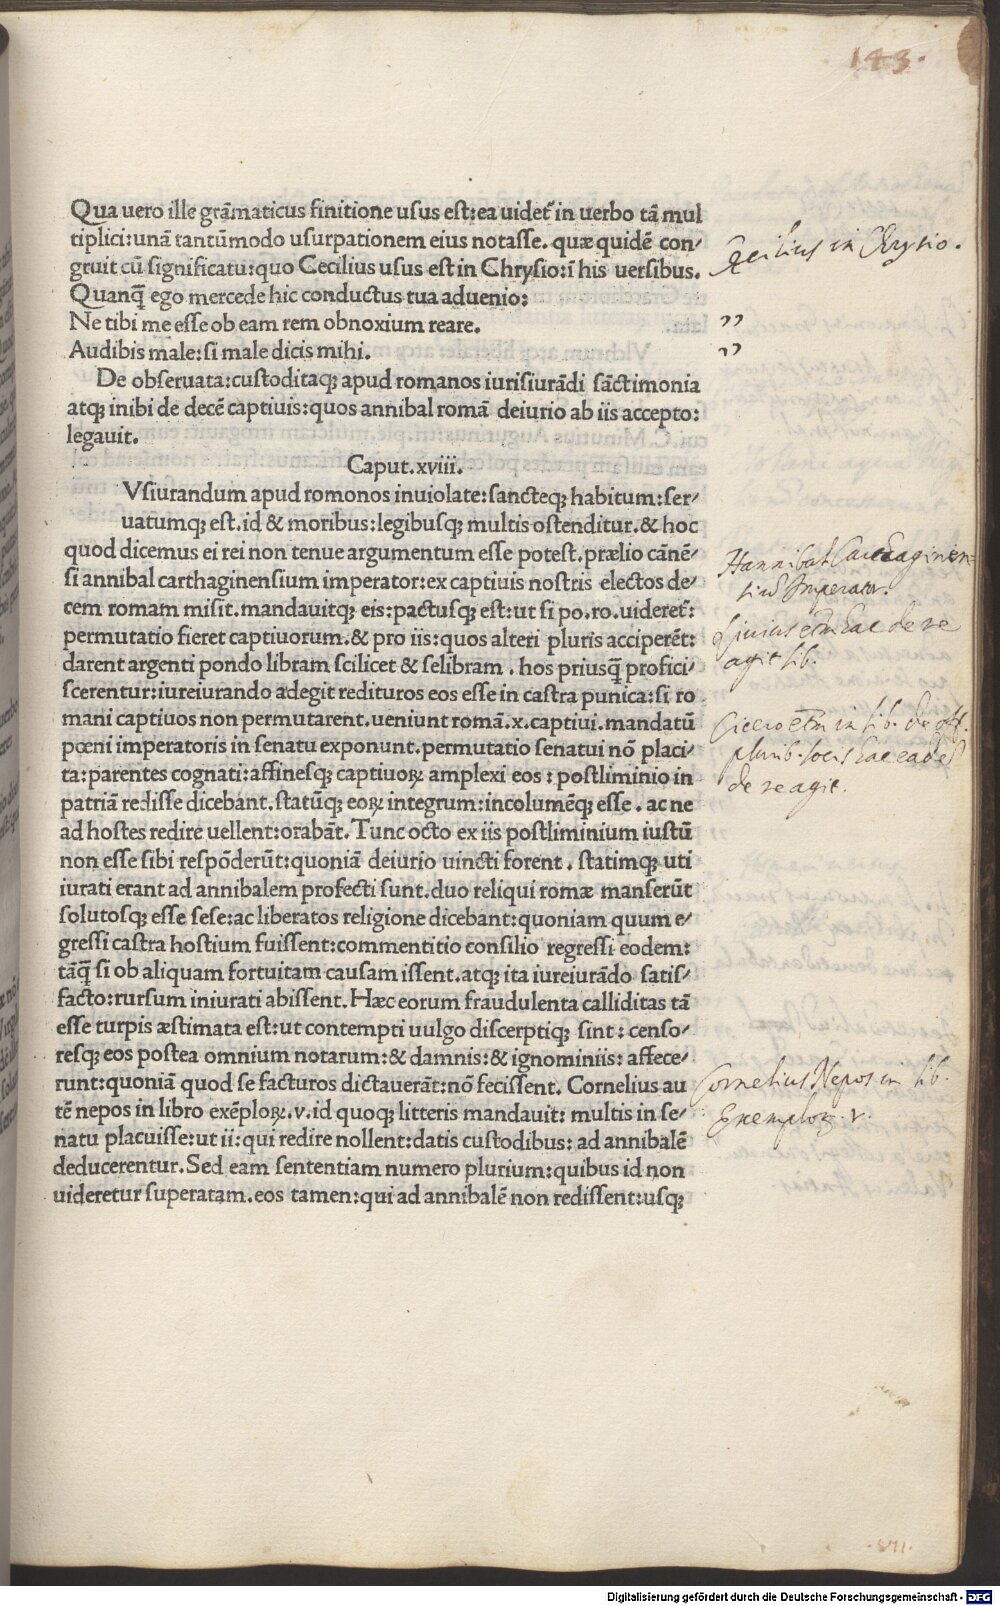 143.
Qua uero ille grāmaticus finitione uſus eſt:ea uidet᷑ in uerbo tā mul
tiplici:unā tantūmodo uſurpationem eius notaſſe. quæ quidē con⸗
gruit cū ſignificatu:quo Cecilius uſus eſt in Chryſio:ī his uerſibus.
Cecilius in Chrysio.
Quanq̄ ego mercede hic conductus tua aduenio:
Ne tibi me eſſe ob eam rem obnoxium reare.
”
Audibis male:ſi male dicis mihi.
”
De obſeruata:cuſtoditaqꝫ apud romanos iuriſiurādi ſāctimonia
atqꝫ inibi de decē captiuis:quos annibal romā deiurio ab iis accepto:
legauit.
Caput.xviii.
Vſiurandum apud romonos inuiolate:ſancteqꝫ habitum:ſer⸗
uatumqꝫ eſt.id & moribus:legibuſqꝫ multis oſtenditur.& hoc
quod dicemus ei rei non tenue argumentum eſſe poteſt.prælio cānē⸗
ſi annibal carthaginenſium imperator:ex captiuis noſtris electos de⸗
cem romam miſit.mandauitqꝫ eis:pactuſqꝫ eſt:ut ſi po.ro.uideret᷑:
permutatio fieret captiuorum.& pro iis:quos alteri pluris acciperēt:
darent argenti pondo libram ſcilicet & ſelibram . hos priusq̄ profici⸗
ſcerentur:iureiurando adegit redituros eos eſſe in caſtra punica:ſi ro
mani captiuos non permutarent.ueniunt romā.x.captiui.mandatū
pœni imperatoris in ſenatu exponunt.permutatio ſenatui nō placi⸗
ta:parentes cognati:affineſqꝫ captiuoꝝ amplexi eos : poſtliminio in
patriā rediſſe dicebant.ſtatūqꝫ eoꝝ integrum:incolumēqꝫ eſſe . ac ne
ad hoſtes redire uellent:orabāt. Tunc octo ex iis poſtliminium iuſtū
non eſſe ſibi reſpōderūt:quoniā deiurio uincti forent . ſtatimqꝫ uti
iurati erant ad annibalem profecti ſunt.duo reliqui romæ manſerūt
ſolutoſqꝫ eſſe ſeſe:ac liberatos religione dicebant:quoniam quum e⸗
greſſi caſtra hoſtium fuiſſent:commentitio conſilio regreſſi eodem:
tāq̄ ſi ob aliquam fortuitam cauſam iſſent.atqꝫ ita iureiurādo ſatiſ⸗
facto:rurſum iniurati abiſſent.Hæc eorum fraudulenta calliditas tā
eſſe turpis æſtimata eſt:ut contempti uulgo diſcerptiqꝫ ſint : cenſo⸗
reſqꝫ eos poſtea omnium notarum:& damnis:& ignominiis: affece⸗
runt:quoniā quod ſe facturos dictauerāt:nō feciſſent. Cornelius au
tē nepos in libro exēploꝝ.v.id quoqꝫ litteris mandauit: multis in ſe⸗
natu placuiſſe:ut ii:qui redire nollent:datis cuſtodibus: ad annibalē
deducerentur.Sed eam ſententiam numero plurium:quibus id non
uideretur ſuperatam.eos tamen:qui ad annibalē non rediſſent:uſqꝫ
Hannibal Carthaginen⸗
siū Imperator.
Liuius etiā hac de re
agit lib.
Cicero etiā in lib. de off.
plurib. locis hac eadē
de re agit.
Cornelius Nepos in lib.
Exemploꝝ v.
Digitalisierung gefördert durch die Deutsche Forschungsgemeinschaft - DFG